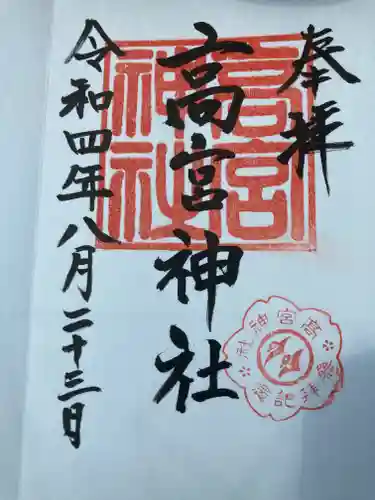 奉拝
高宮神社
令和四年八月二十三日
高宮神社
高宮神社